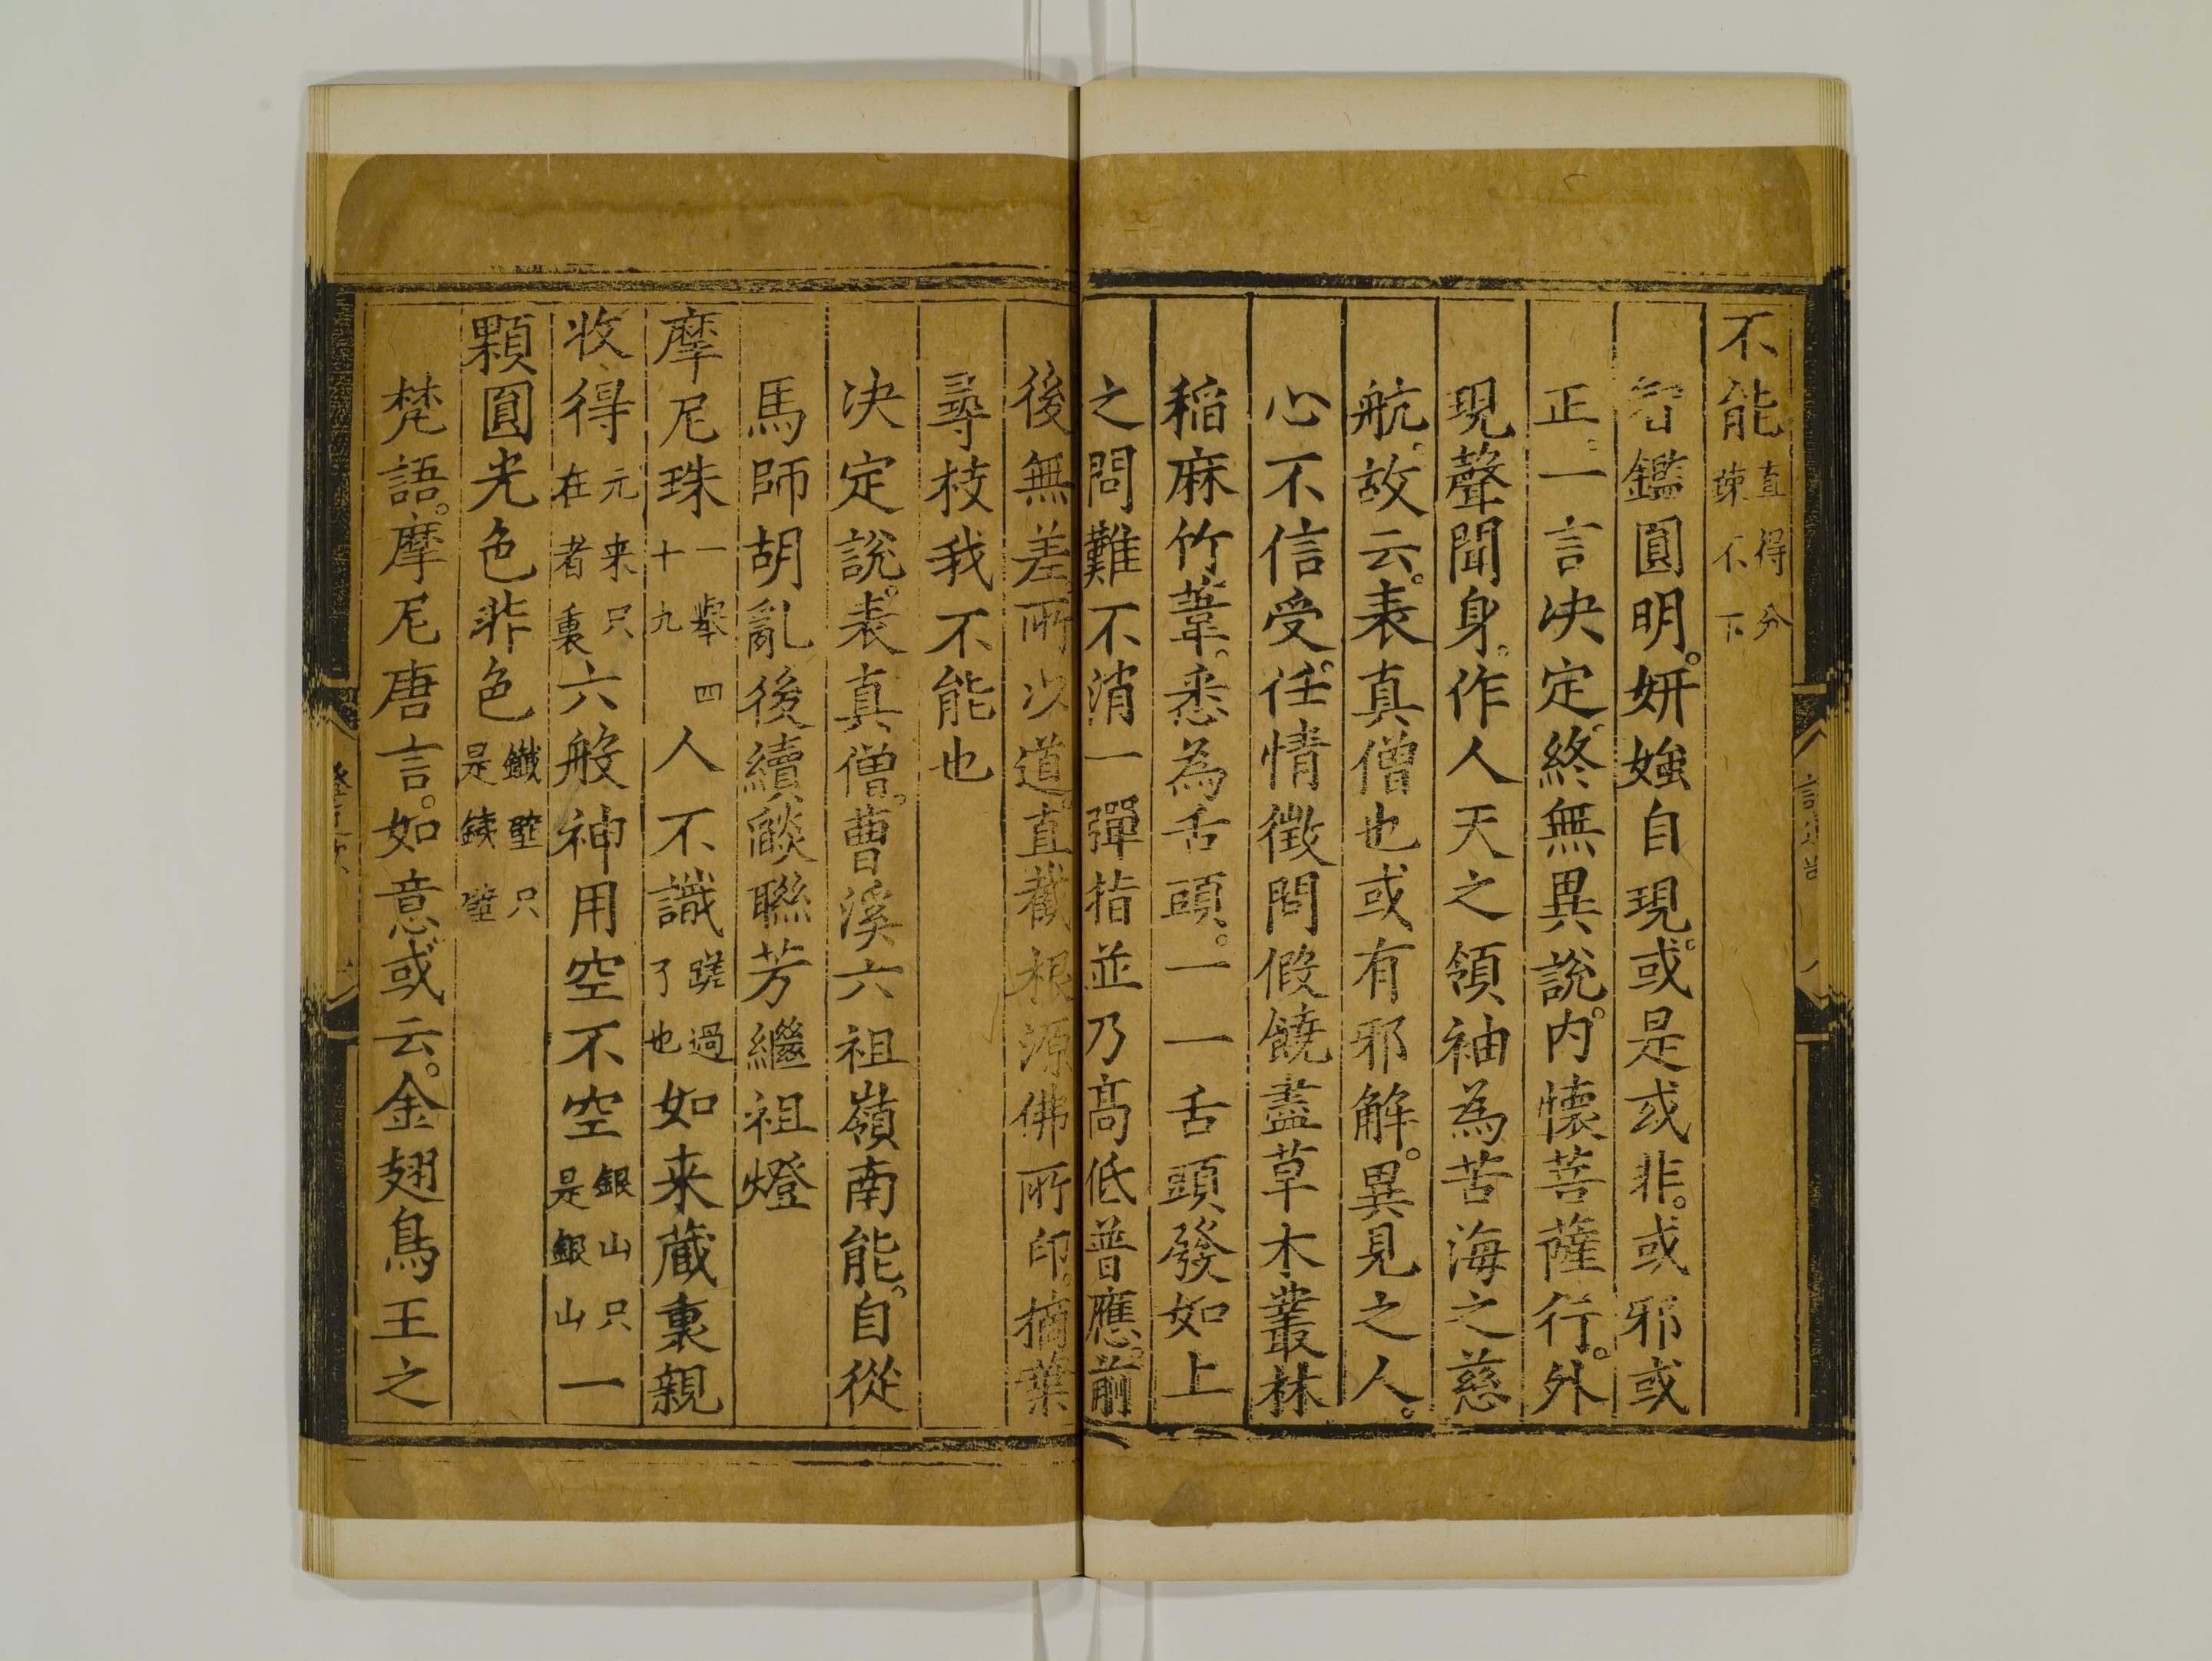 不能直得分踈不下
智鑑圓明。妍媸自現。或是或非。或邪或
正。一言決定。終無異說。内懷菩薩行。外
現聲聞身。作人天之領袖為苦海之慈
航。故云。表真僧也或有邪解。異見之人。
心不信受。任情徵問假饒盡草木叢林
稲麻竹葦。悉為舌頭。一一舌頭發如上
之問難不消一彈指並乃高低普應。前
後無差。所以道。直截根源佛所印。摘葉
尋枝我不能也
決定說。表真僧。曹溪六祖嶺南能。自從
馬師胡亂後續燄聯芳繼祖燈
摩尼珠一舉四十九人不識蹉過了也如来蔵裏親
收得元来只在者裏六般神用空不空銀山只是銀山一
顆圓光色非色鐵壁只是鉄壁
梵語。摩尼唐言。如意或云。金翅鳥王之